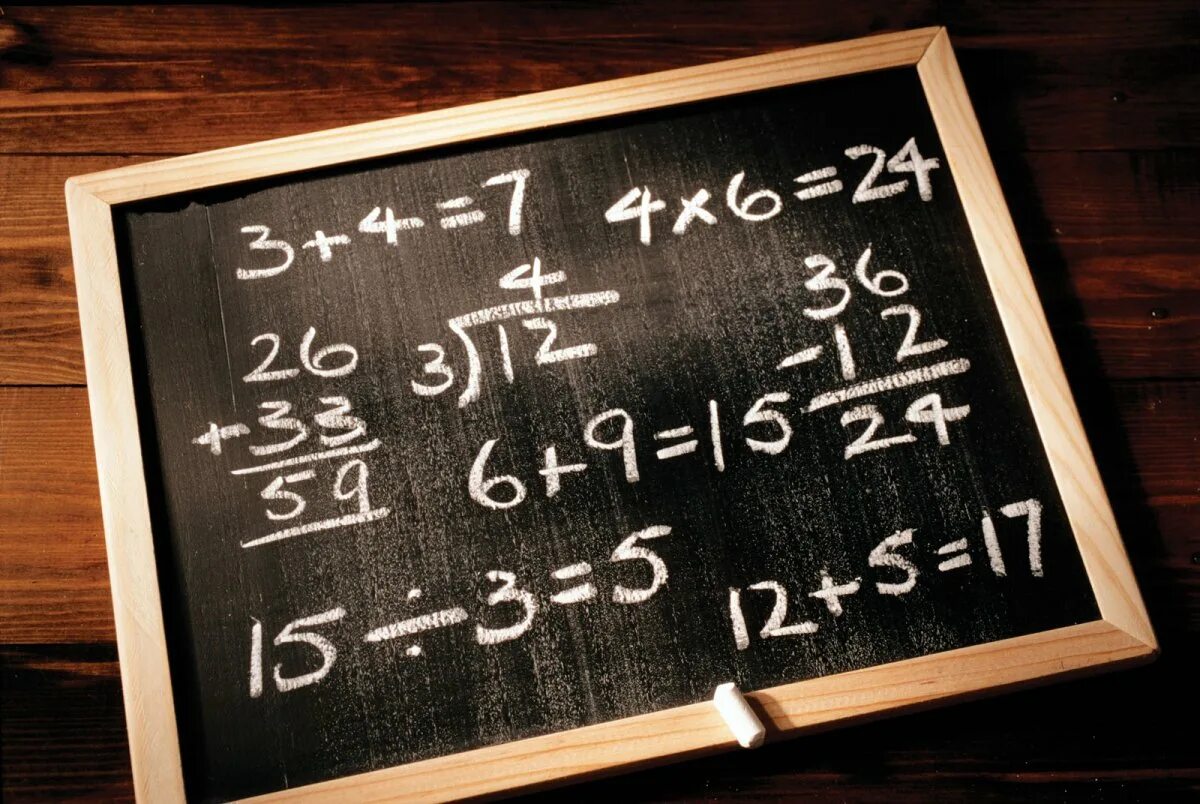 3 + 4 = 7
4 × 6 = 24
4
3)12
26
+ 33
59
36
- 12
24
6 + 9 = 15
15 ÷ 3 = 5
12 + 5 = 17